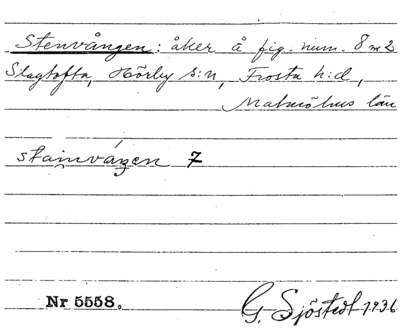 Stenvången: åker å fig. num. 8 nr 2
Slagtofta, Hörby s:n, Frosta h:d,
Malmöhus län
stainvángen 7
Nr 5558.
G. Sjöstedt 1936.